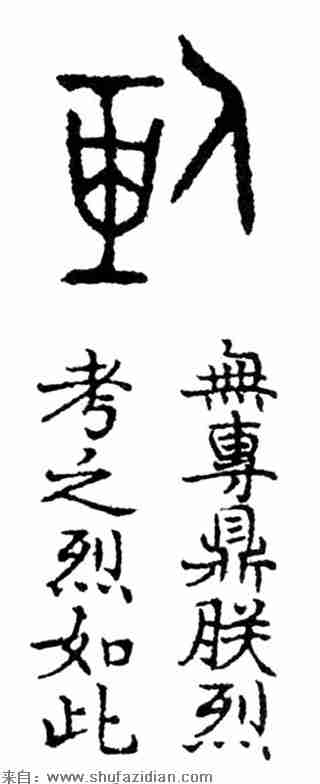 無專鼎朕烈
考之烈如此
来自：www.shufazidian.com